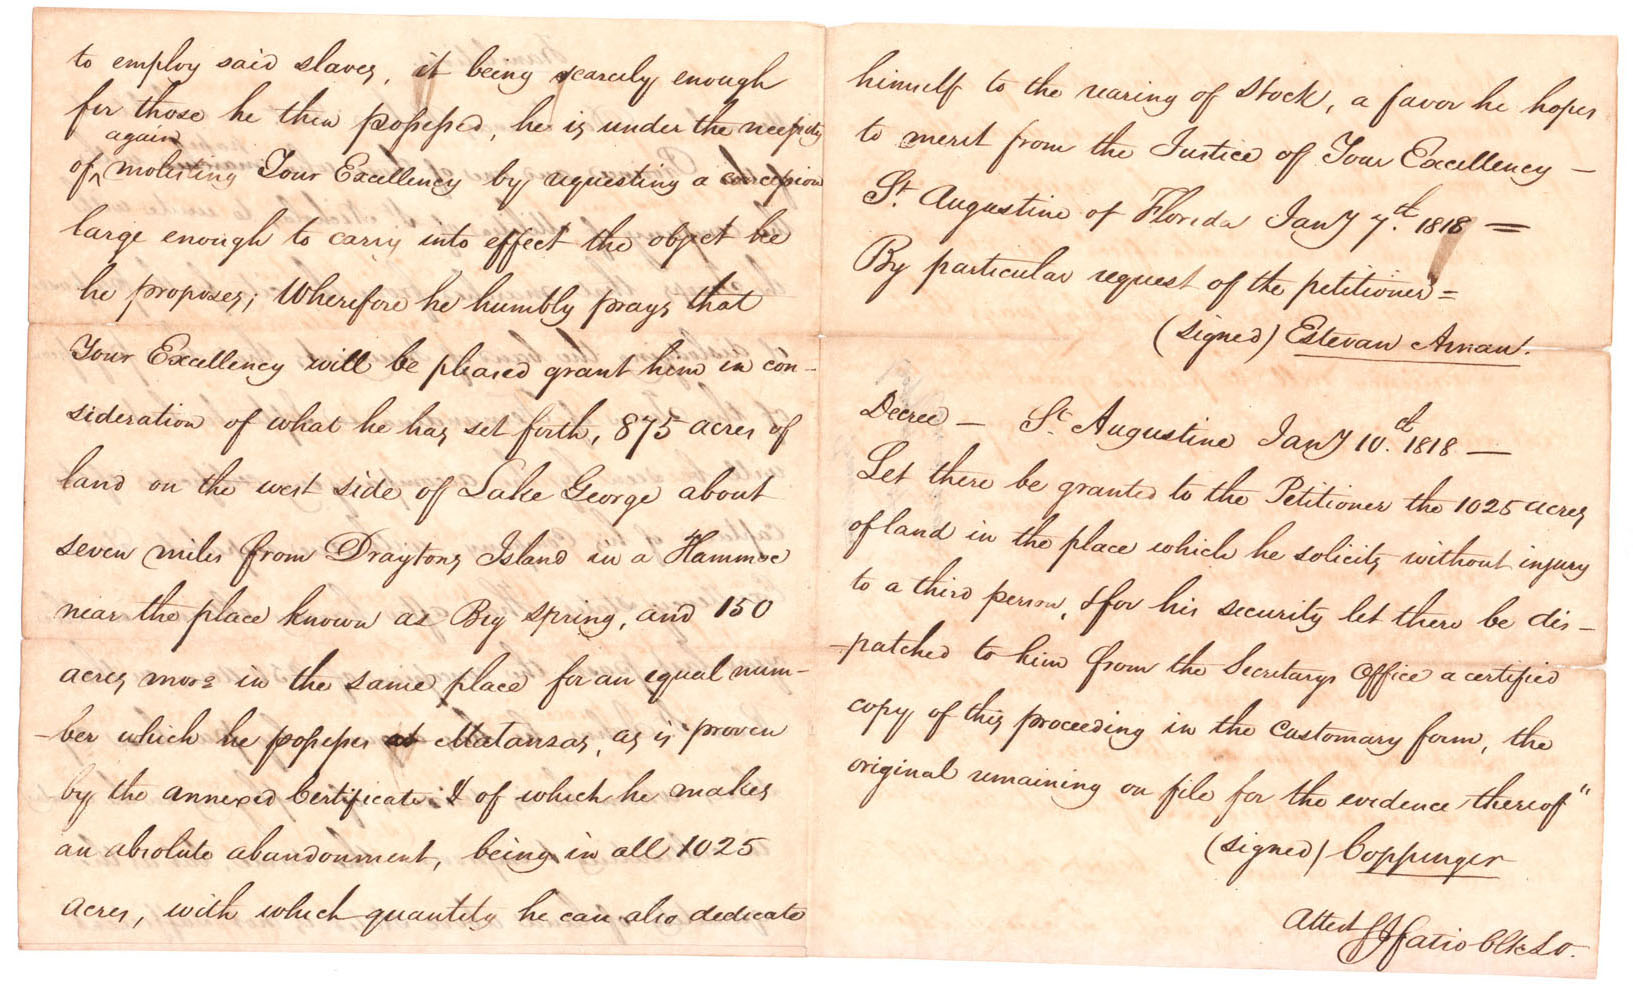 to employ said slaves, it being scarcely enough
for those he then possessed, he is under the necessity
again
of molesting Your Excellency by requesting a concession
large enough to carry into effect the object he
he proposes; Wherefore he humbly prays that
Your Excellency will be pleased grant him in con-
sideration of what he has set forth, 875 acres of
land on the west side of Lake George about
seven miles from Draytons Island in a Hammoc
near the place known as Big spring, and 150
acres more in the same place for an equal num-
-ber which he possesses at Matanzas, as is proven
by the annexed Certificate & of which he makes
an absolute abandonment, being in all 1025
acres, with which quantity he can also dedicate
himself to the rearing of Stock, a favor he hopes
to merit from the Justice of Your Excellency —
St. Augustine of Florida Jany 7th. 1818 =
By particular request of the petitioner =
(signed) Estevan Arnau.
Decree — St. Augustine Jany 10th. 1818 —
Let there be granted to the Petitioner the 1025 acres
of land in the place which he solicits without injury
to a third person, & for his security let there be dis-
-patched to him from the Secretarys Office a certified
copy of this proceeding in the customary form, the
original remaining on file for the evidence thereof"
(signed) Coppinger
Attest Fatio Clk